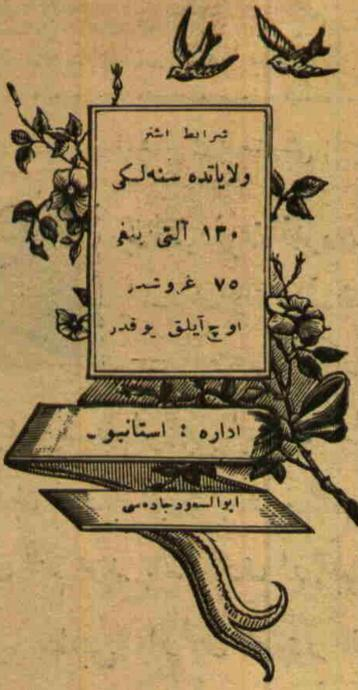 شرائط اشتر
ولایاتده سنه‌لکی
۱۳۰ آلتی
۷۵ غروشدر
اوچ آیلق یوقدر
اداره : استانبو
ابوالسعود جاده‌سی